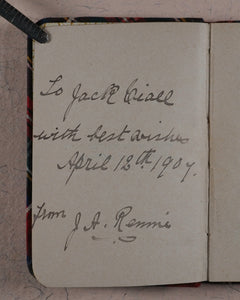 To Jack Niall
with best wishes
April 12th 1907.
from
J. A. Rennie